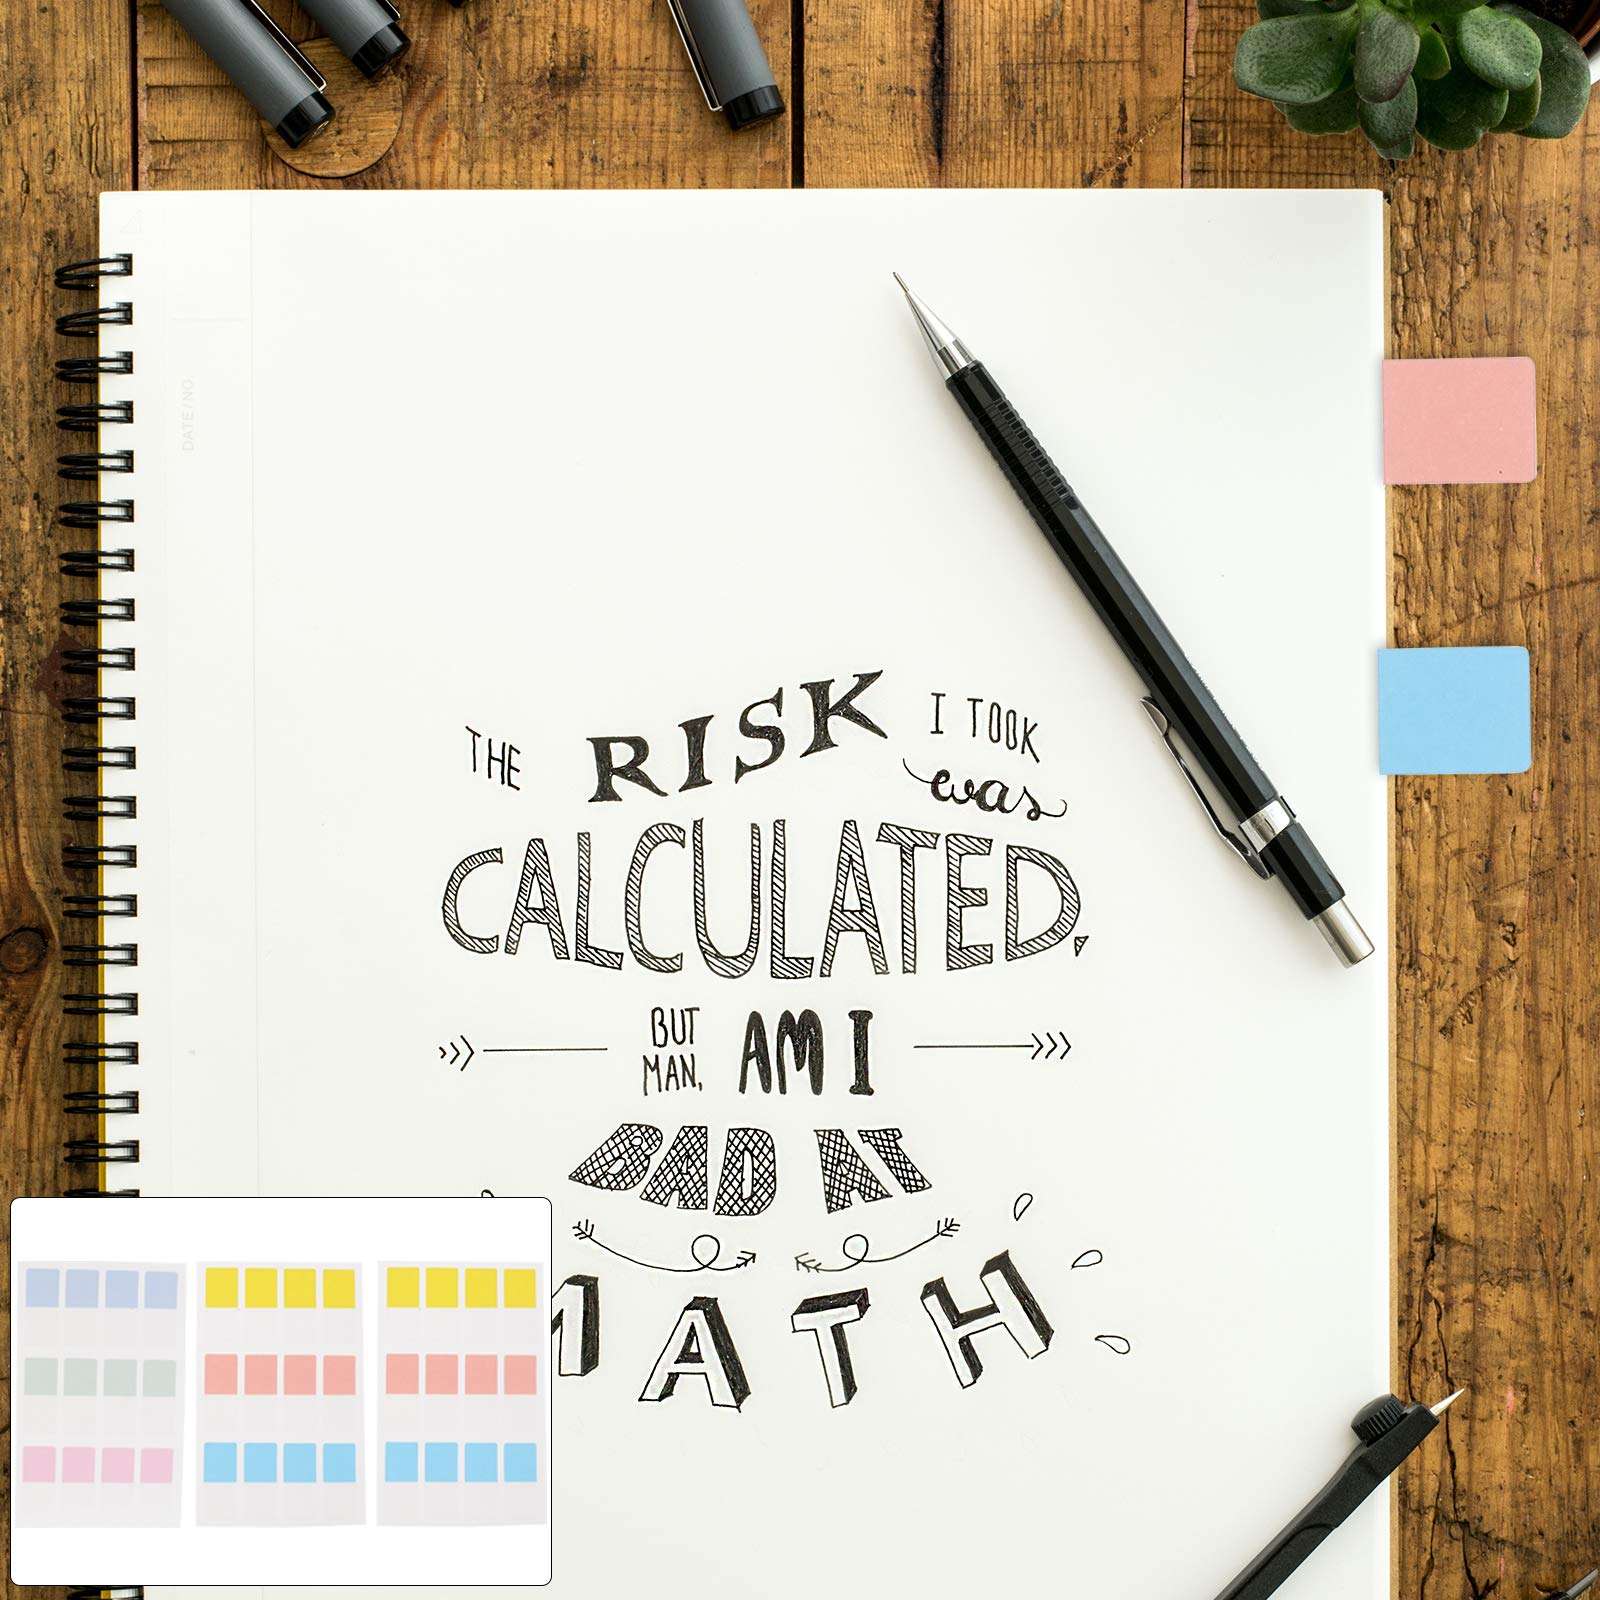 DATE/NO
THE RISK I TOOK
was
CALCULATED,
BUT
MAN, AM I
BAD AT
MATH